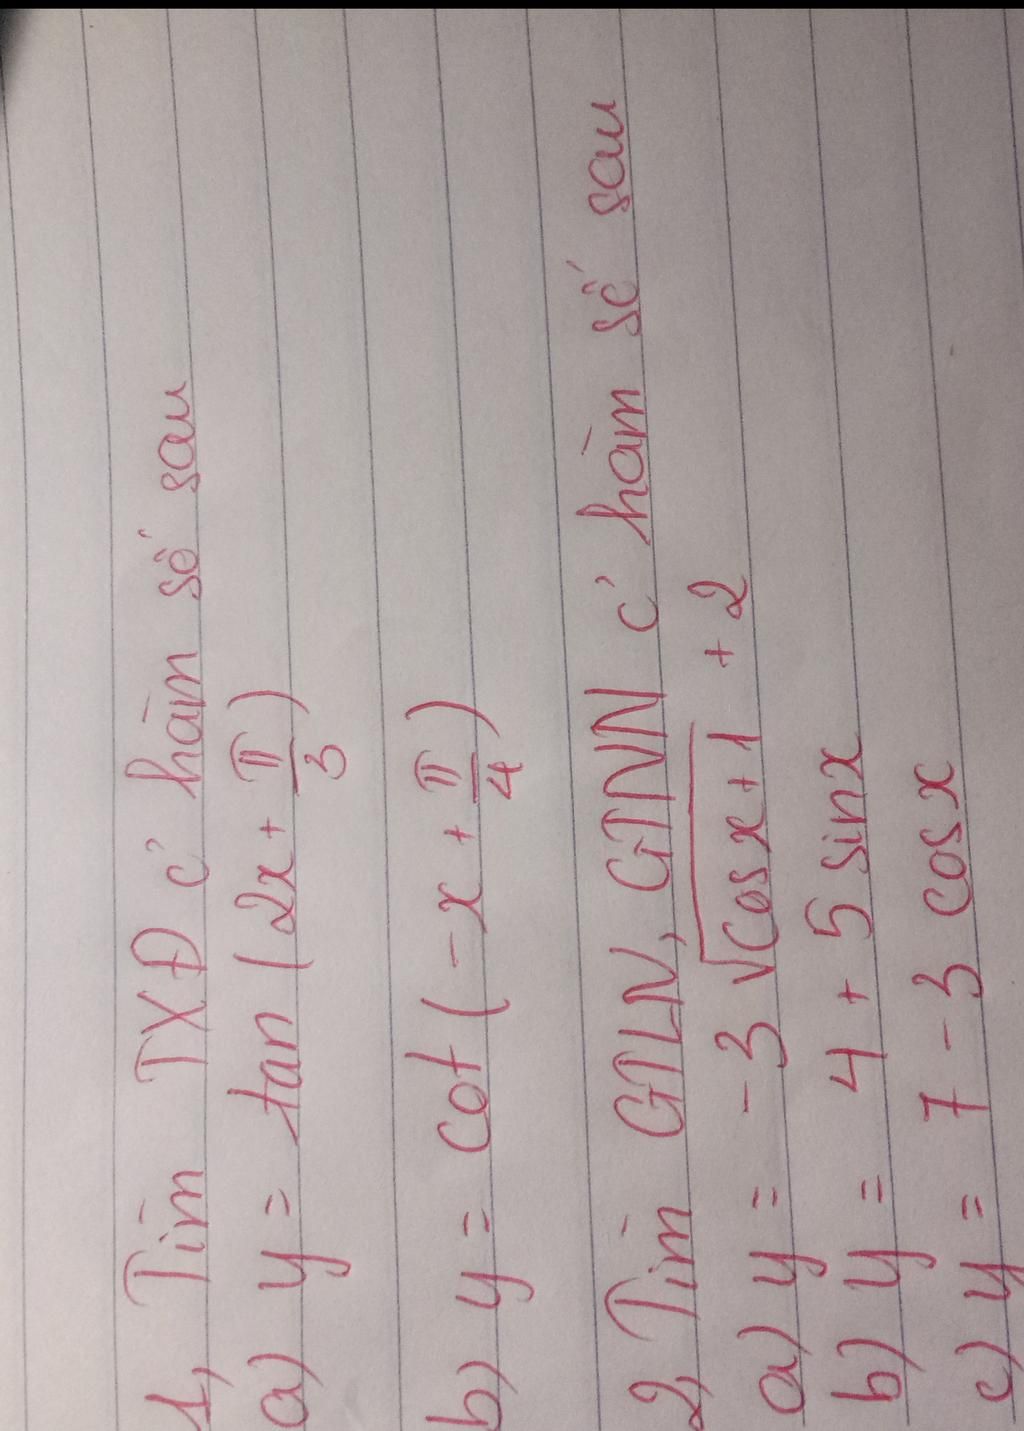 1, Tìm TXĐ c' hàm số sau
a) y = tan (2x + π/3)
b) y = cot (-x + π/4)
2, Tìm GTLN, GTNN c' hàm số sau
a) y = -3 √(cos x + 1) + 2
b) y = 4 + 5 sinx
c) y = 7 - 3 cos x